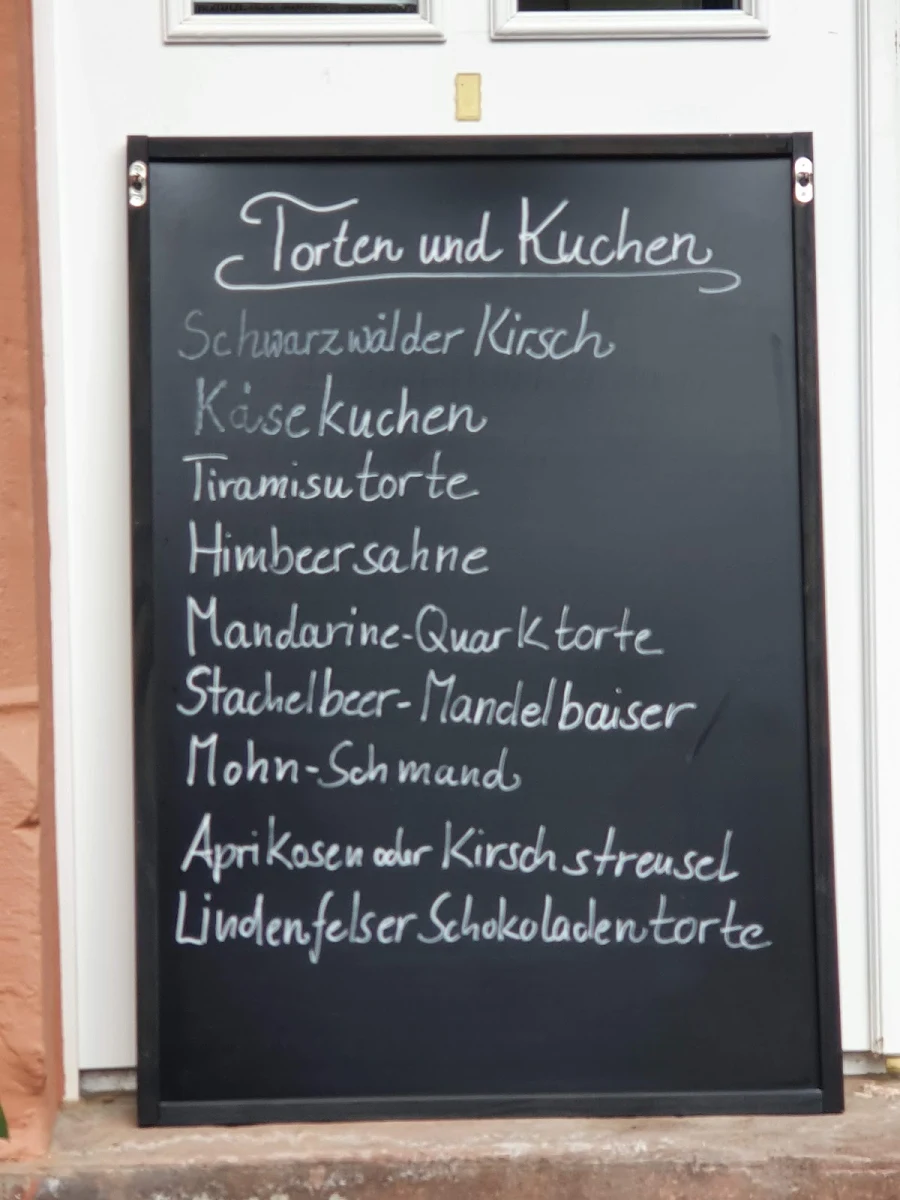 Torten und Kuchen
Schwarzwälder Kirsch
Käsekuchen
Tiramisutorte
Himbeersahne
Mandarine-Quarktorte
Stachelbeer-Mandelbaiser
Mohn-Schmand
Aprikosen oder Kirschstreusel
Lindenfelser Schokoladentorte